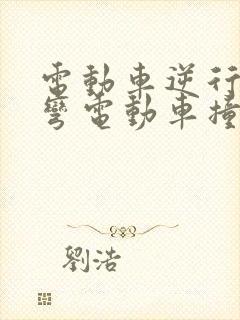 電動車逆行
彎電動車撞
劉浩